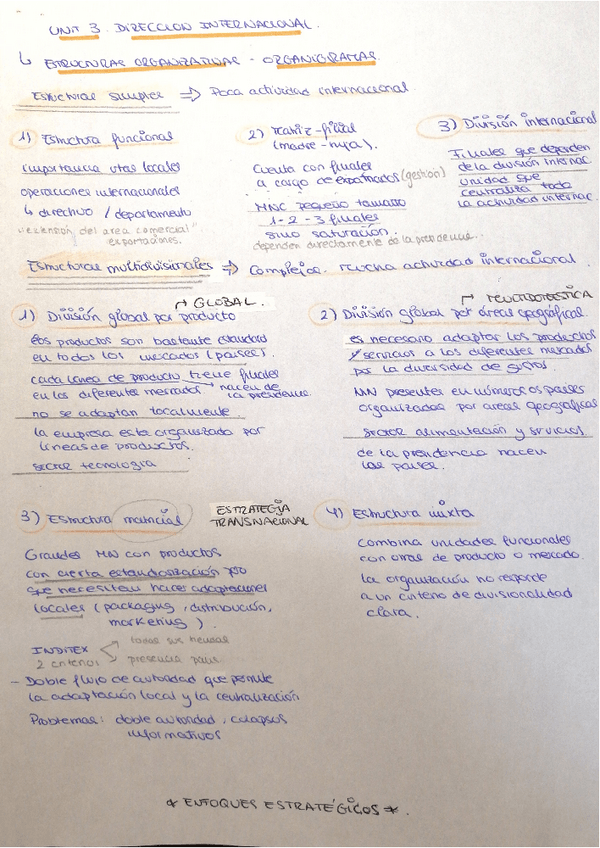 UNIT 3. DIRECCION INTERNACIONAL.
↳ ESTRUCTURAS ORGANIZATIVAS - ORGANIGRAMAS.
Estructuras simples ⇒ Poca actividad internacional
1) Estructura funcional
importancia vtas locales
operaciones internacionales
↳ directivo / departamento
"extensión del area comercial"
exportaciones.
2) Matriz-filial
(madre-hija).
Cuenta con filiales
a cargo de expatriados (gestión)
MNC pequeño tamaño
1-2-3 filiales
sino saturación.
dependen directamente de la presidencia...
3) División internacional
Filiales que dependen
de la división internac.
unidad que
centraliza toda
la actividad internac.
Estructuras multidivisionales ⇒ Complejas. mucha actividad internacional.
1) División global por producto
↱ GLOBAL.
Los productos son bastante estandard
en todos los mercados (paises).
cada linea de producto tiene filiales
en los diferentes mercados → nacen de
la presidencia
no se adaptan localmente.
la empresa esta organizada por
lineas de productos.
sector tecnologia
2) División global por áreas geográficas.
↱ MULTIDOMESTICA
es necesario adaptar los productos
y servicios a los diferentes mercados
por la diversidad de gustos.
MN presentes en números os paises
organizadas por areas geograficas
sector alimentación y servicios
de la presidencia nacen
los paises.
3) Estructura matricial
ESTRATEGIA
TRANSNACIONAL
Grandes MN con productos
con cierta estandarización pero
que necesitan hacer adaptaciones
locales (packaging, distribución,
marketing).
INDITEX
2 criterios
todas sus tiendas
presencia pais
- Doble flujo de autoridad que permite
la adaptación local y la centralización
Problemas: doble autoridad, colapsos
informativos
4) Estructura mixta
combina unidades funcionales
con otras de producto o mercado.
la organización no responde
a un criterio de divisionalidad
clara.
* ENFOQUES ESTRATÉGICOS *.